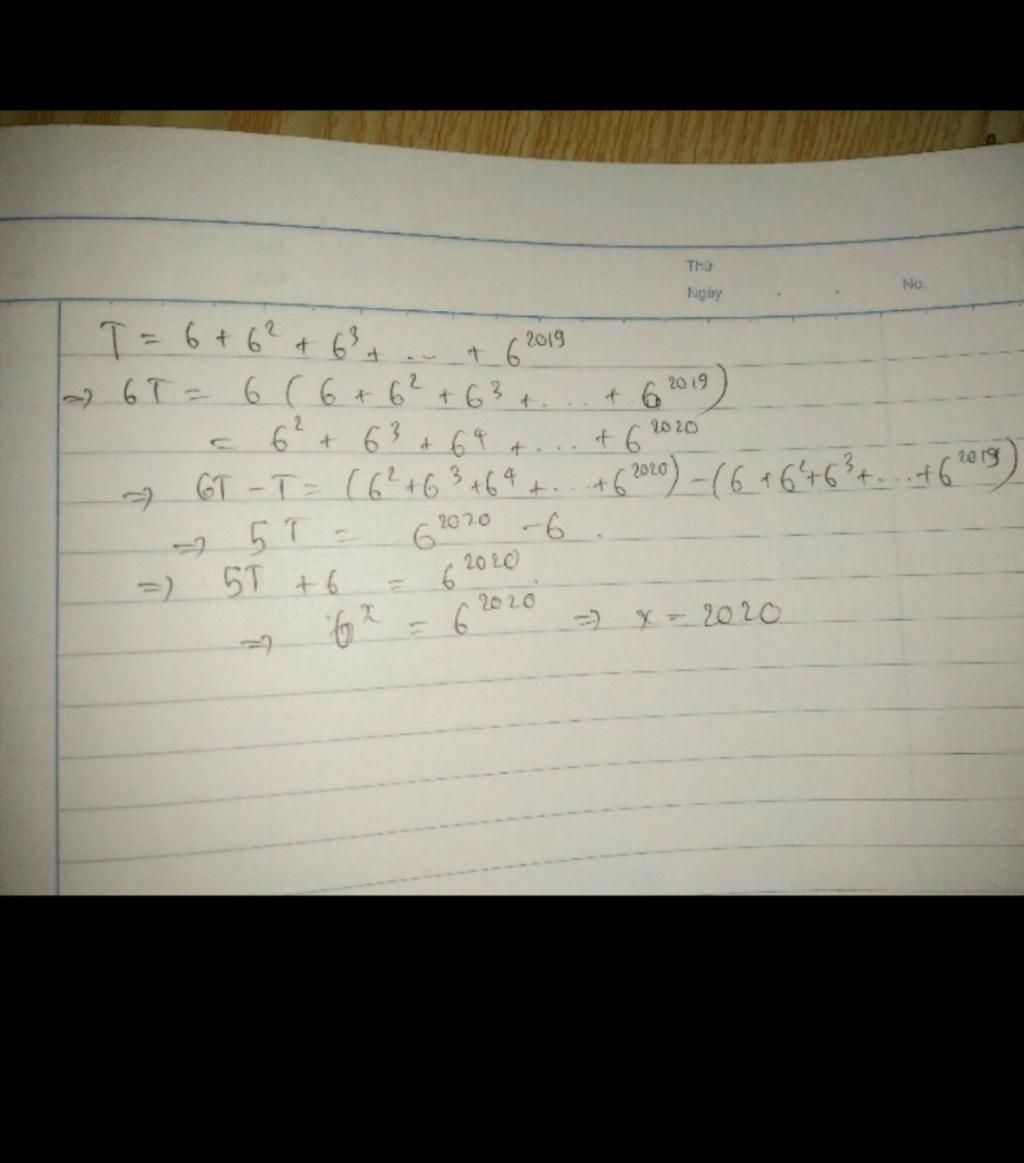 Thứ
Ngày . . No.
T = 6 + 6² + 6³ + ... + 6²⁰¹⁹
=> 6T = 6 ( 6 + 6² + 6³ + .... + 6²⁰¹⁹)
= 6² + 6³ + 6⁴ + .... + 6²⁰²⁰
=> 6T - T = (6² + 6³ + 6⁴ + ... + 6²⁰²⁰) - (6 + 6² + 6³ + ... + 6²⁰¹⁹)
=> 5T = 6²⁰²⁰ - 6 .
=> 5T + 6 = 6²⁰²⁰.
=> 6ˣ = 6²⁰²⁰ => x = 2020